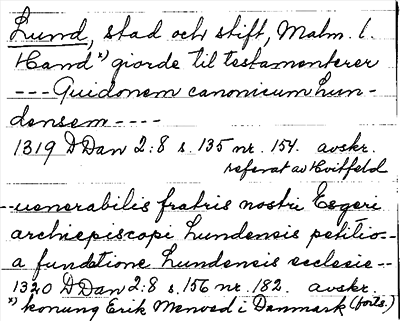 Lund, stad och stift, Malm. l.
Hand x) giorde til testamenterer
--- Guidonem canonicum Lun-
densem ----
1319 DDan 2:8 s. 135 nr. 154. avskr.
referat av Hvitfeld
-- uenerabilis fratris nostri Esgeri
archiepiscopi Lundensis petitio --
a fundatione Lundensis ecclesie --
1320 DDan 2:8 s. 156 nr. 182. avskr.
x) konung Erik Menved i Danmark (forts.)